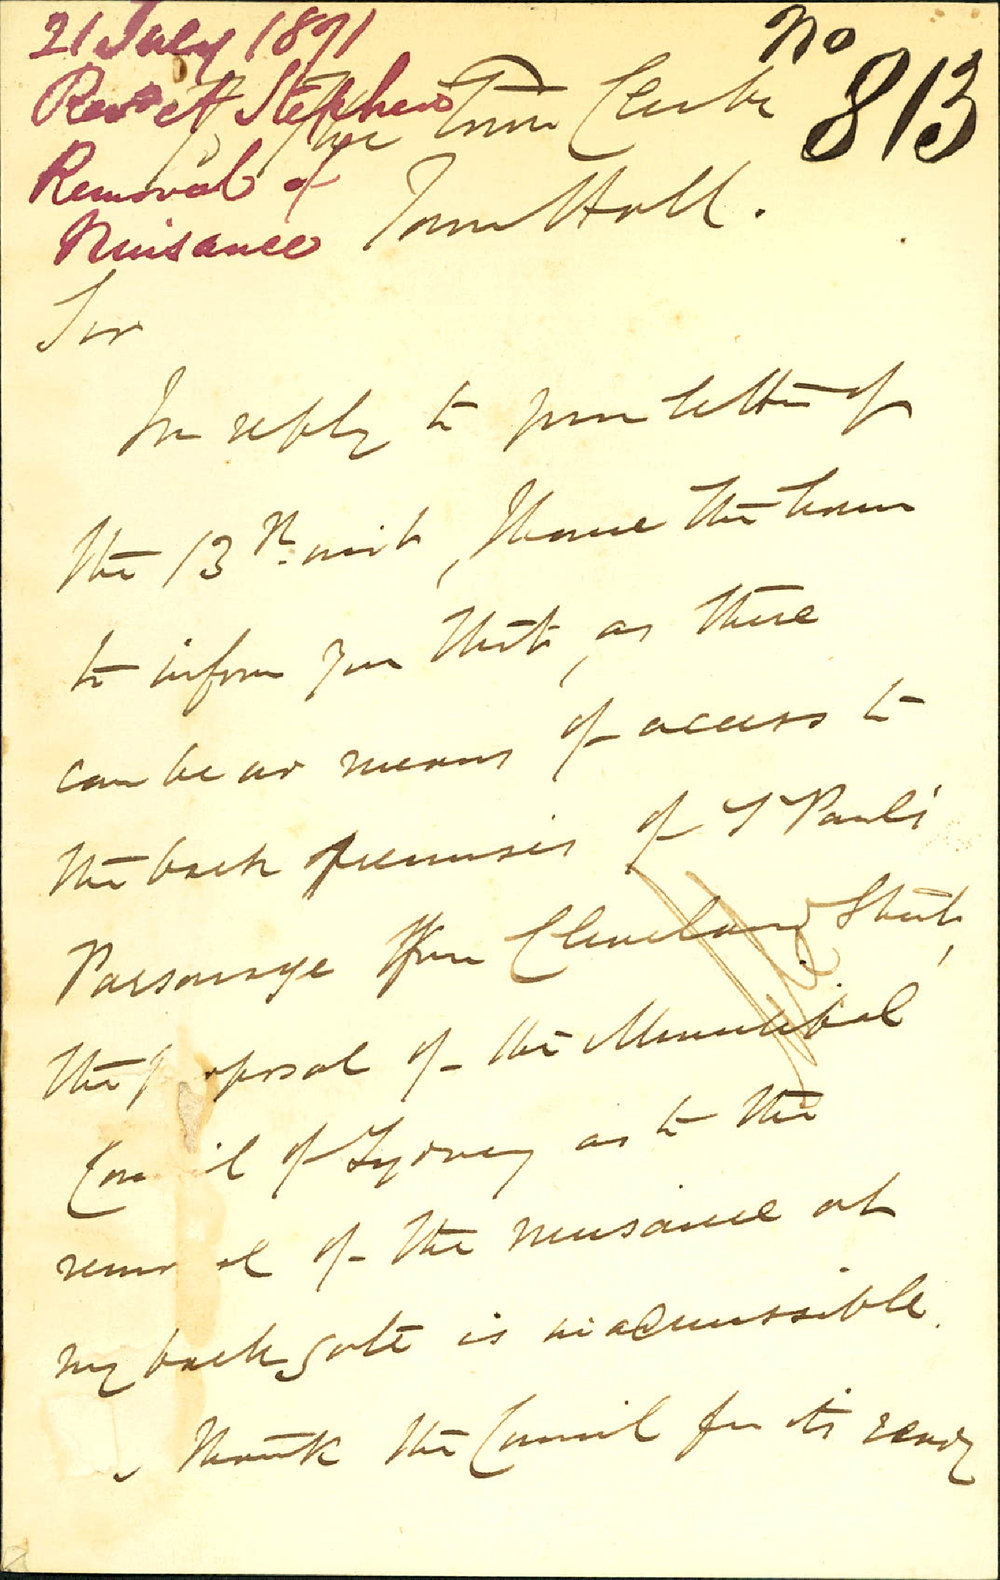 21 July 1871
Revd A Stephen
Removal of
Nuisance
No
813
To the Town Clerk
Town Hall.
Sir
In reply to your letter of
the 13th. inst, I have the honor
to inform you that, as there
can be no means of access to
the back premises of St Paul's
Parsonage from Cleveland Street,
the p oposal of the Municipal
Coun il of Sydney as to the
remov al of the nuisance at
my back gate is inadmissible.
thank the Council for its ready